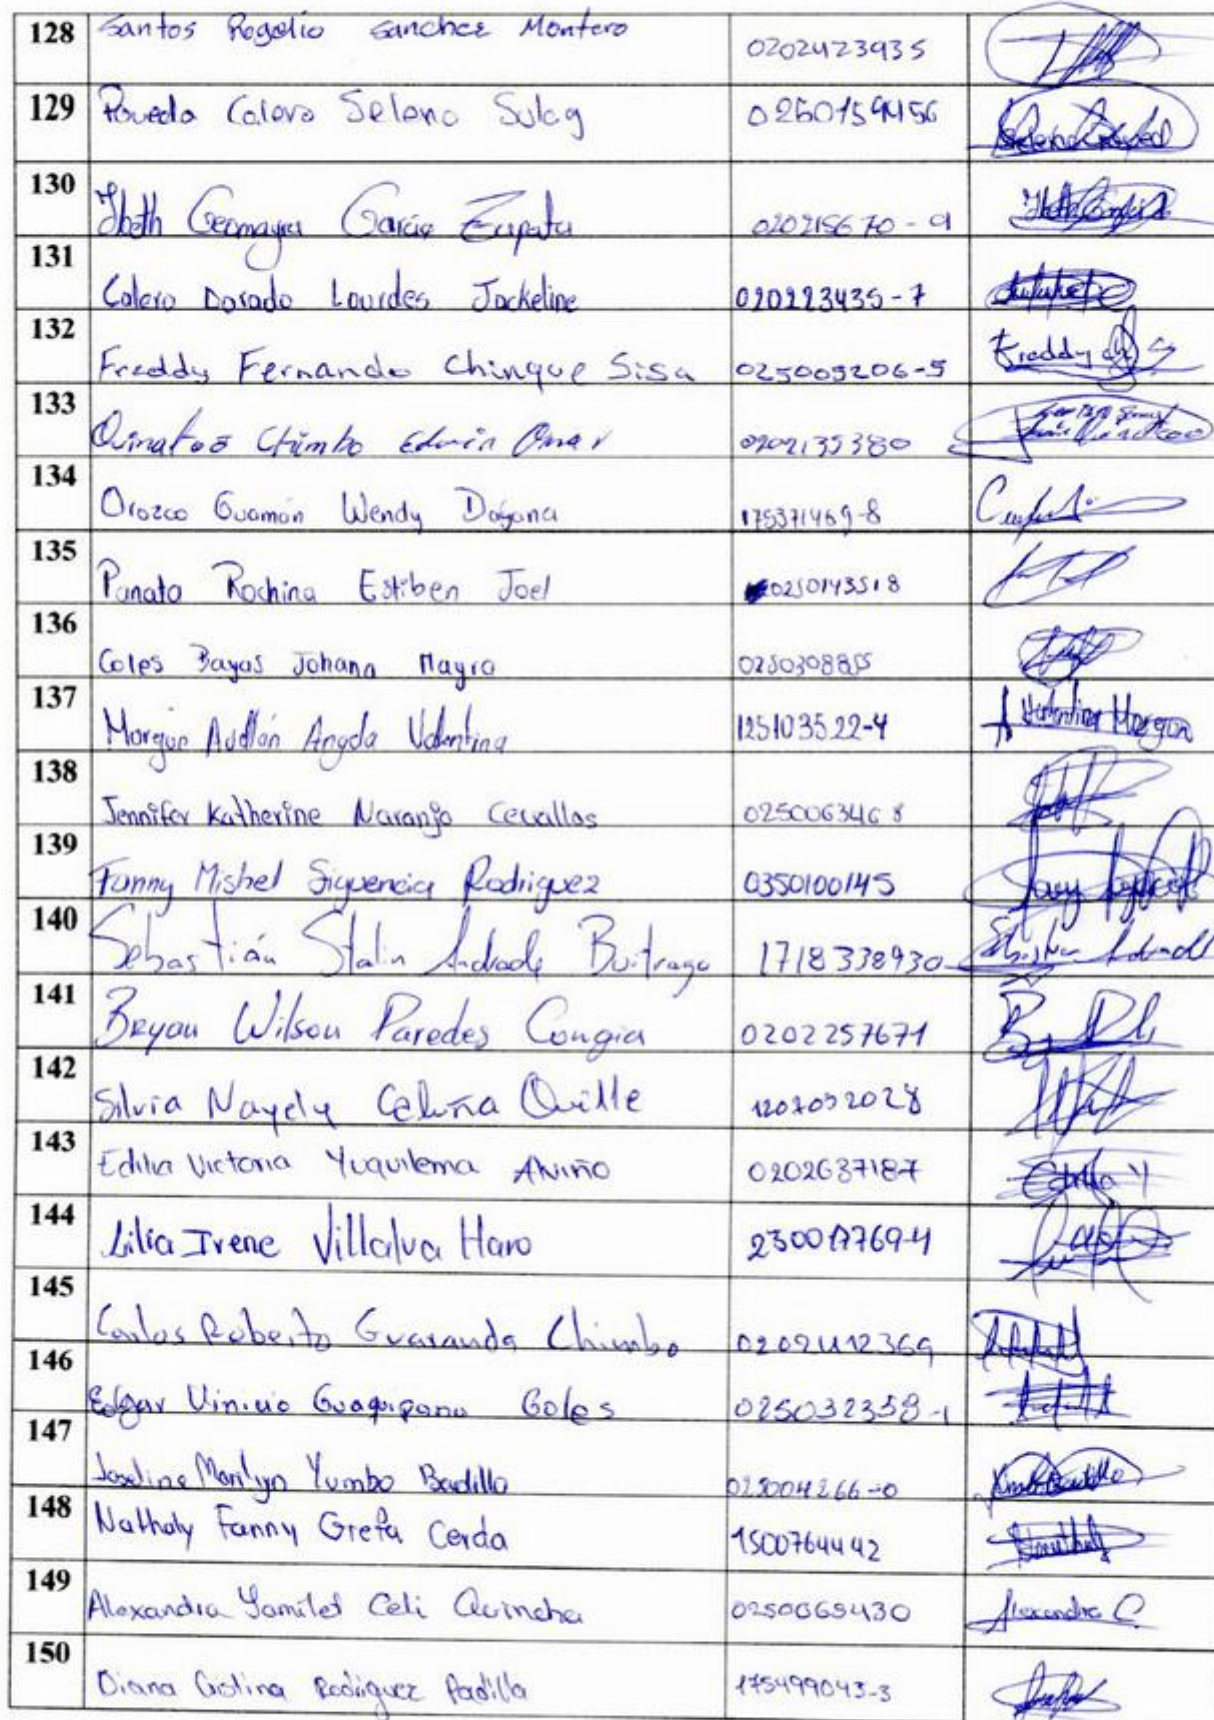 128 Santos Rogelio Sanchez Montero 0202423935
129 Poveda Calero Selena Sulay 0250159456
130 Ibeth Geomayra Garcia Zapata 020215670-9
131 Calero Dorado Lourdes Jackeline 020223435-7
132 Freddy Fernando Chinque Sisa 025005206-5 Freddy
133 Quinatoa Chimbo Edwin Omar 0202135380
134 Orozco Guamán Wendy Dayana 175371469-8
135 Punata Rochina Estiben Joel 0250143518
136 Coles Bayas Johana Mayra 0250308855
137 Morgan Audlán Angela Valentina 125103522-4 Valentina Morgan
138 Jennifer Katherine Naranjo Cevallos 0250063468
139 Fanny Mishel Siguencia Rodriguez 0350100145
140 Sebastián Stalin Andrade Buitrago 1718338930
141 Bryan Wilson Paredes Congia 0202257671
142 Silvia Nayely Celuña Quille 1207052028
143 Edilia Victoria Yuquilema 0202637187
144 Lilia Irene Villalva Haro 230017769-4
145 Carlos Roberto Guaranda Chimbo 0202412369
146 Edgar Vinicio Guaquipana Coles 025032358-1
147 Joseline Marilyn Yumbo Badillo 025004266-0
148 Nathaly Fanny Grefa Cerda 1500764442
149 Alexandra Yamilet Celi Quincha 0250065430 Alexandra C
150 Diana Cristina Rodriguez Padilla 175499043-3